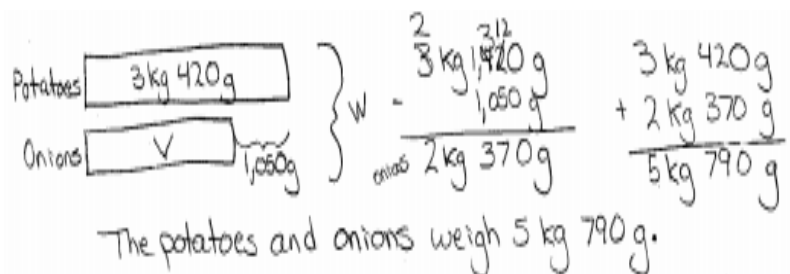 Potatoes 3kg 420g
Onions V 1,050g
W
2 3 12
3 kg 1,420 g
- 1,050 g
onions 2 kg 370 g
3 kg 420 g
+ 2 kg 370 g
5 kg 790 g
The potatoes and onions weigh 5 kg 790 g.